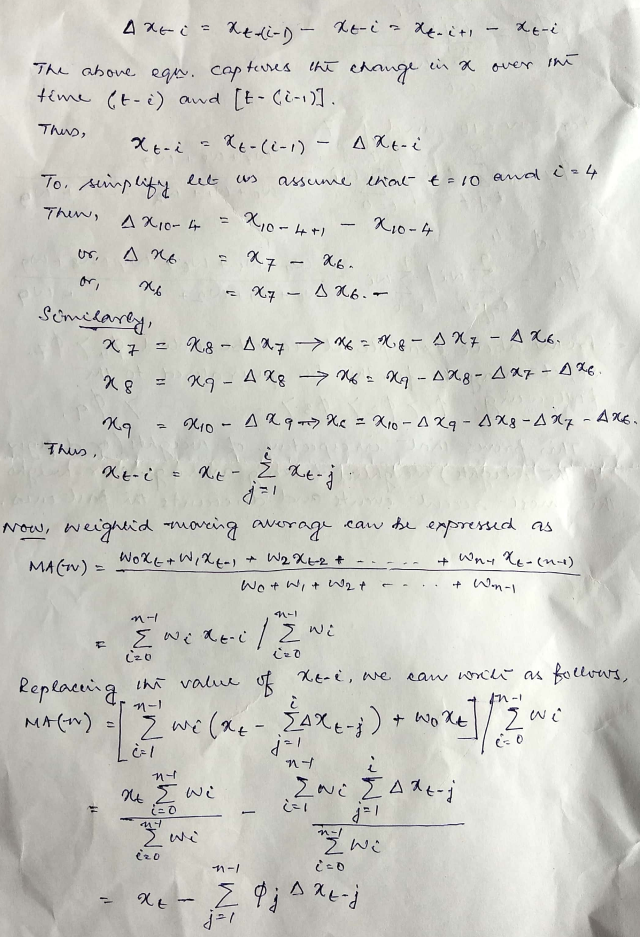 Δx_{t-i} = x_{t-(i-1)} - x_{t-i} = x_{t-i+1} - x_{t-i}
The above eqn. captures the change in x over the
time (t-i) and [t-(i-1)].
Thus,
x_{t-i} = x_{t-(i-1)} - Δx_{t-i}
To, simplify let us assume that t=10 and i=4
Then, Δx_{10-4} = x_{10-4+1} - x_{10-4}
or, Δx_6 = x_7 - x_6.
or, x_6 = x_7 - Δx_6. –
Similarly,
x_7 = x_8 - Δx_7 → x_6 = x_8 - Δx_7 - Δx_6.
x_8 = x_9 - Δx_8 → x_6 = x_9 - Δx_8 - Δx_7 - Δx_6.
x_9 = x_{10} - Δx_9 → x_6 = x_{10} - Δx_9 - Δx_8 - Δx_7 - Δx_6.
Thus,
x_{t-i} = x_t - Σ_{j=1}^{i} x_{t-j}.
Now, weighted moving average can be expressed as
MA(n) = (w_0x_t + w_1x_{t-1} + w_2x_{t-2} + ------ + w_{n-1}x_{t-(n-1)}) / (w_0 + w_1 + w_2 + ----- + w_{n-1})
= Σ_{i=0}^{n-1} w_i x_{t-i} / Σ_{i=0}^{n-1} w_i
Replacing the value of x_{t-i}, we can write as follows,
MA(n) = [Σ_{i=1}^{n-1} w_i (x_t - Σ_{j=1}^{i} Δx_{t-j}) + w_0x_t] / Σ_{i=0}^{n-1} w_i
= (x_t Σ_{i=0}^{n-1} w_i) / (Σ_{i=0}^{n-1} w_i) - (Σ_{i=1}^{n-1} w_i Σ_{j=1}^{i} Δx_{t-j}) / (Σ_{i=0}^{n-1} w_i)
= x_t - Σ_{j=1}^{n-1} φ_j Δx_{t-j}